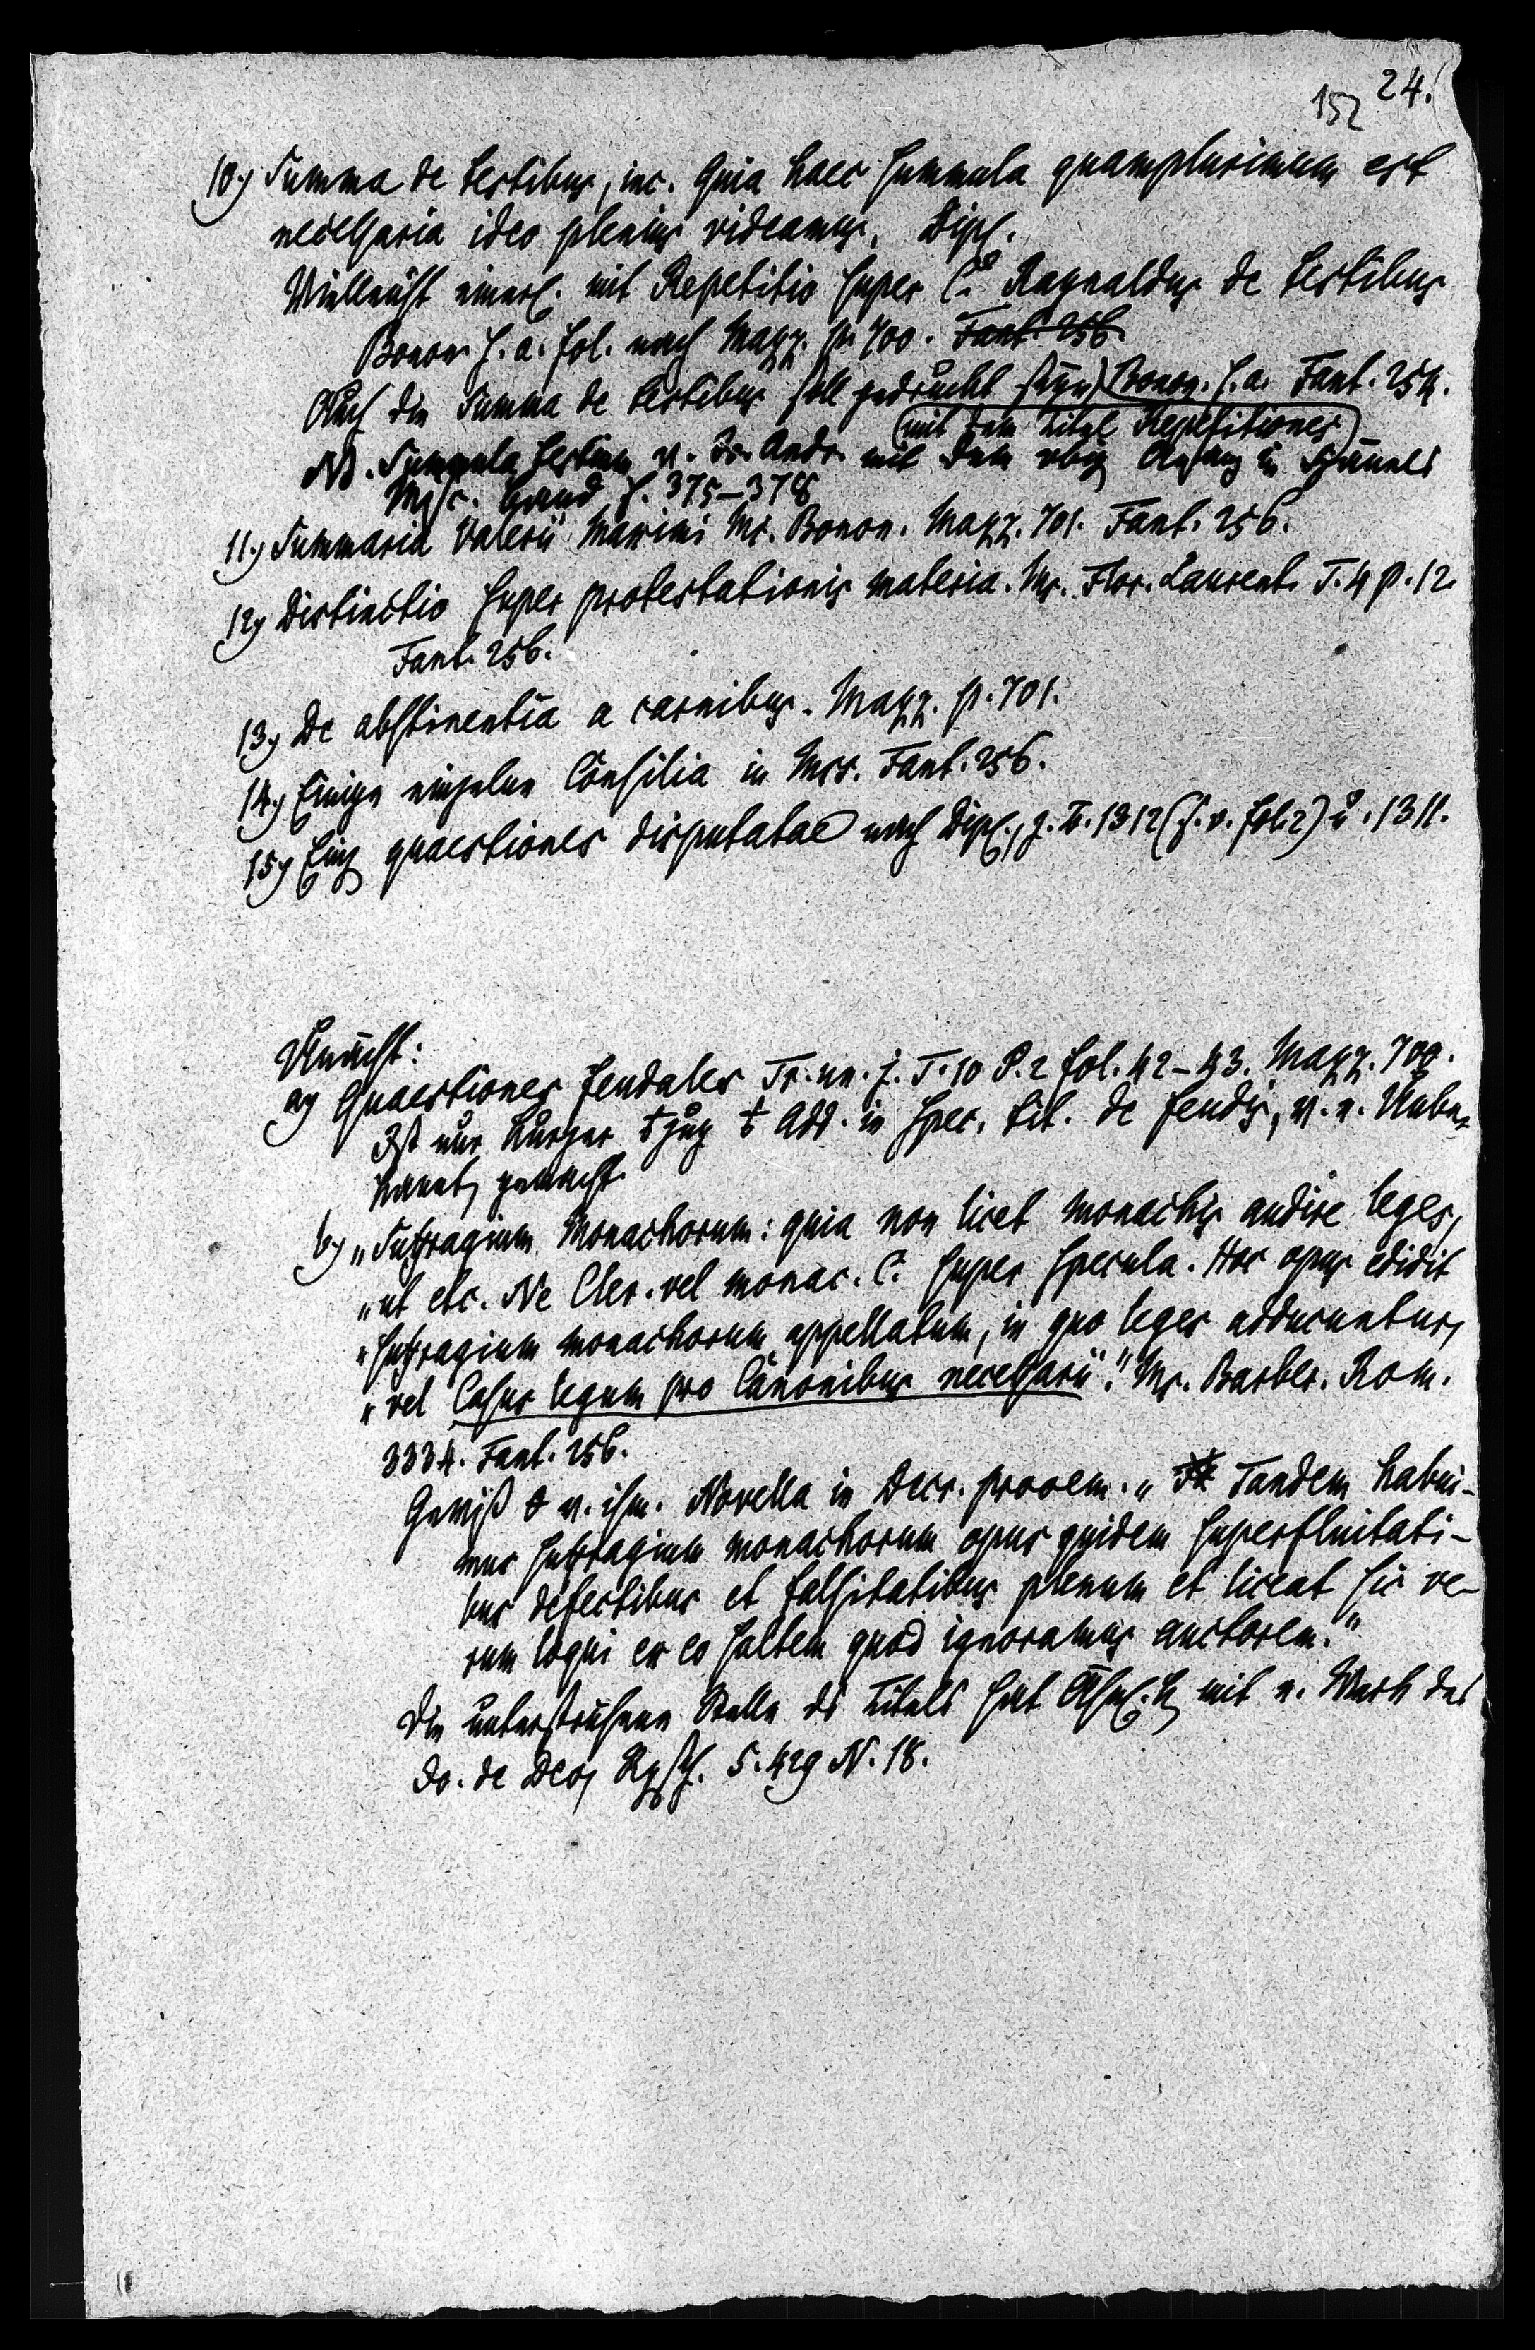 152 24.
10.) Summa de testibus, inc. Quia haec summula quamplurimum est
necessaria ideo plenius videamus. Dipl.
Vielleicht einerl. mit Repetitio super C. Raynaldus de testibus
Bonon s. a. fol. nach Mazz. p. 700. Fant. 256.
Auch die Summa de testibus soll gedruckt seyn Bonon. s. a. Fant. 254.
mit dem Titel Repetitiones
NB. Summula testium v. Jo. Andr. mit dem obig Anfang in
Msc. Band S. 375–378
11.) Summaria Valerii Maximi Ms. Bonon. Mazz. 701. Fant. 256.
12.) Distinctio super protestationis materia. Ms. Flor. Laurent. T. 4 p. 12.
Fant. 256.
13.) De abstinentia a carnibus. Mazz. p. 701.
14.) Einige einzelne Consilia in Mss. Fant. 256.
15.) Einz quaestiones disputatae nach Dipl., z. B. 1312 (s. v. fol. 2) u. 1311.
Unächt:
a) Quaestiones feudales Tr. un. j. T. 10 P. 2 fol. 42–43. Mazz. 709.
Ist nur kurzer Add. in Spec. tit. de feudis, v. e. Unbe-
kannt gemacht.
b) „Suffragium Monachorum: quia non licet monachis audire leges,
„ut etc. Ne Cler. vel monac. C. super specula. Hoc opus edidit
„suffragium monachorum appellatum, in quo leges adducuntur,
„vel Casus legum pro Canonibus necessarii." Ms. Barber. Rom.
3334. Fant. 256.
Gewiß v. ihm. Novella in Decr. prooem. „Tandem habui-
mus suffragium monachorum opus quidem superfluitati-
bus defectibus et falsitatibus plenum et liceat sic ve-
rum loqui ex eo saltem quod ignoramus auctorem."
Die unterstrichene Stelle ds Titels hat mit e. Werk des
Jo. de Deo, S. 429 N. 18.